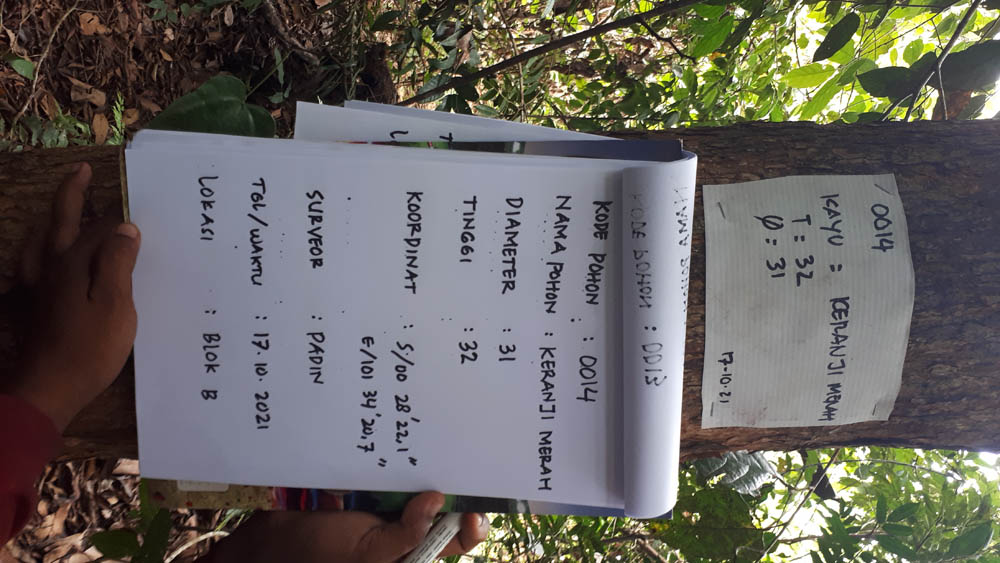 0014
KAYU = KERANJI MERAH
T = 32
φ = 31
17-10-21
NAMA POHON
KODE POHON : 0013
KODE POHON : 0014
NAMA POHON : KERANJI MERAH
DIAMETER : 31
TINGGI : 32
KOORDINAT : S/00 28'22,1"
E/101 34'20,7"
SURVEOR : PADIN
TGL/WAKTU : 17.10.2021
LOKASI : BLOK B